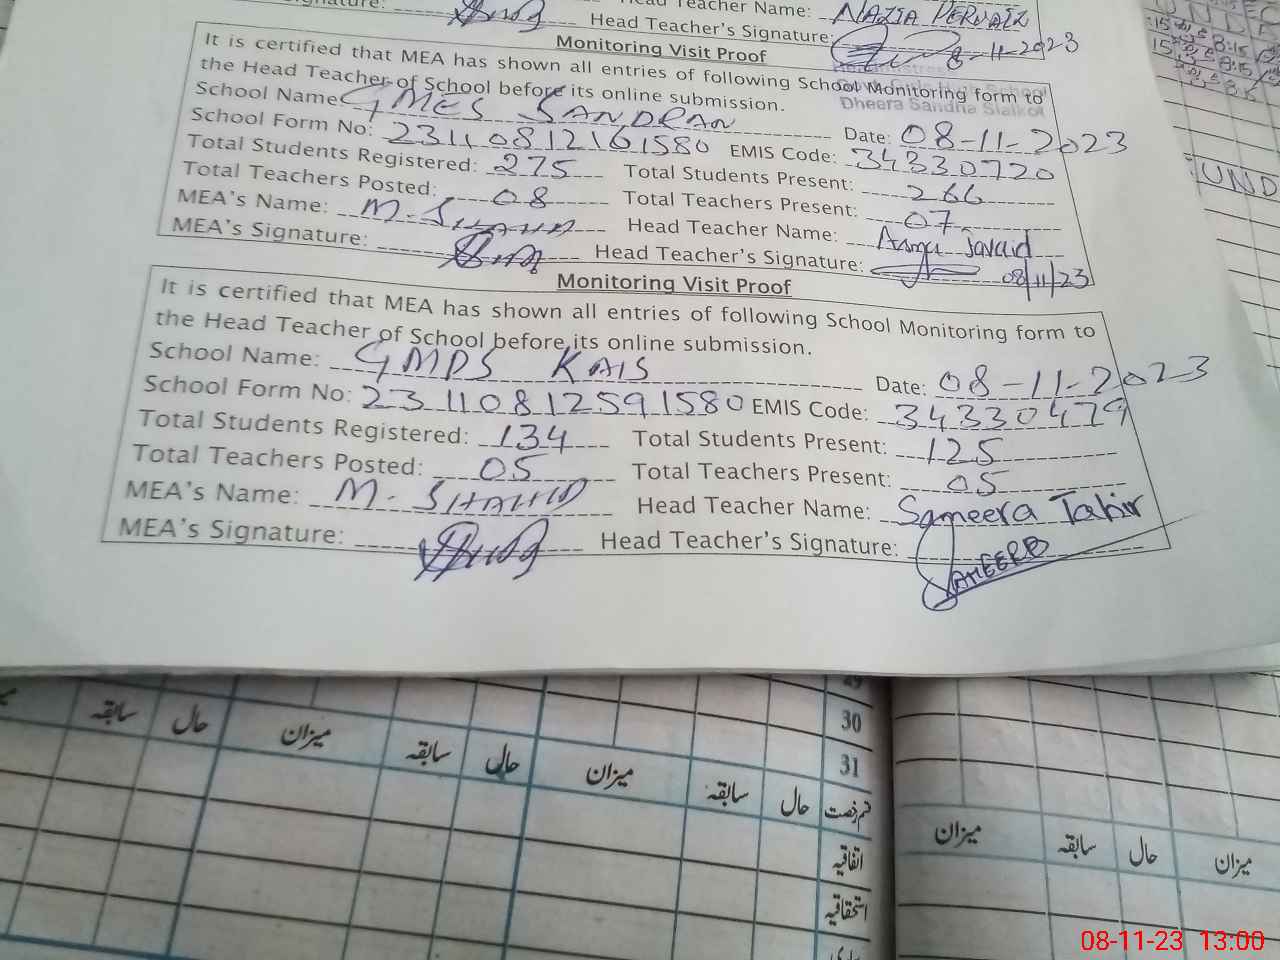 Signature: Head Teacher Name: NAZIA PERVAIZ
Head Teacher's Signature: 8-11-2023
Monitoring Visit Proof
It is certified that MEA has shown all entries of following School Monitoring form to
the Head Teacher of School before its online submission.
Dheera Sandha Sialkot
School Name GMES SANDRAN Date: 08-11-2023
School Form No: 23110812161580 EMIS Code: 34330720
Total Students Registered: 275 Total Students Present: 266
Total Teachers Posted: 08 Total Teachers Present: 07
MEA's Name: M. SHAHID Head Teacher Name: Asma Javaid
MEA's Signature: Head Teacher's Signature: 08/11/23
Monitoring Visit Proof
It is certified that MEA has shown all entries of following School Monitoring form to
the Head Teacher of School before its online submission.
School Name: GMPS KAIS Date: 08-11-2023
School Form No: 23110812591580 EMIS Code: 34330479
Total Students Registered: 134 Total Students Present: 125
Total Teachers Posted: 05 Total Teachers Present: 05
MEA's Name: M. SHAHID Head Teacher Name: Sameera Tahir
MEA's Signature: Head Teacher's Signature: SAMEERA
29
30
31
سابقہ حال میزان سابقہ حال میزان سابقہ حال قسم رخصت میزان سابقہ حال میزان
اتفاقیہ
استحقاقیہ
08-11-23 13:00